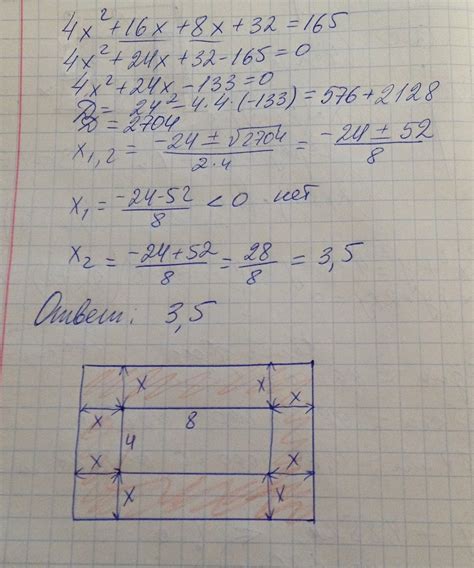 4x²+16x+8x+32=165
4x²+24x+32-165=0
4x²+24x-133=0
D= 24²-4·4·(-133)=576+2128
D=2704
x₁,₂ = (-24±√2704)/(2·4) = (-24±52)/8
x₁ = (-24-52)/8 <0 нет
x₂ = (-24+52)/8 = 28/8 = 3,5
Ответ: 3,5
x x
x 8 x
4
x x
x x